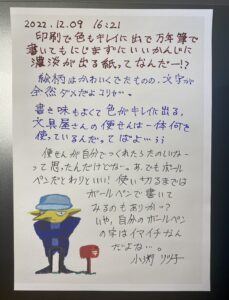 2022.12.09 16:21
印刷で色もキレイに出て万年筆で
書いてもにじまずにいいかんじに
濃淡が出る紙ってなんだー!?
絵柄はかわいくでたものの、文字が
全然ダメだよコリャ。
書き味もよくて色がキレイに出る。
文具屋さんの便せんは一体何を
使っているんだ。てばよ…
便せんが自分でつくれたらたのしいねー
って思ったんだけどなー。あ、でもボール
ペンだとわりといい!使い切るまでは
ボールペンで書いて
みるのもありか…?
いや、自分のボールペン
の字はイマイチなん
だよね…。